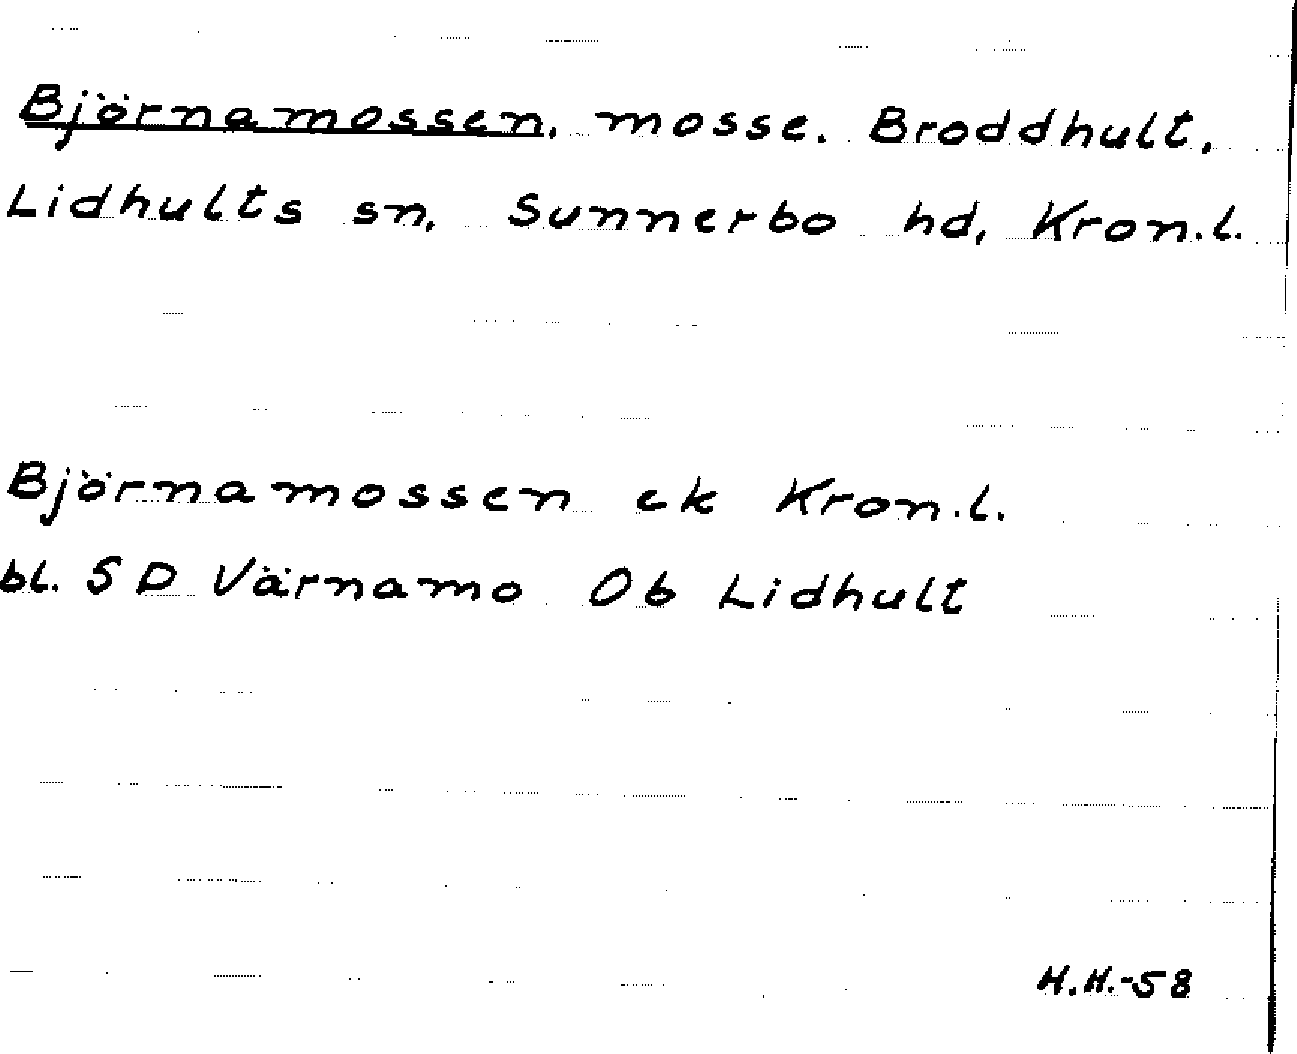 Björnamossen, mosse. Broddhult,
Lidhults sn, Sunnerbo hd, Kron.l.
Björnamossen ek Kron.l.
bl. 5 D Värnamo Ob Lidhult
H.H.-58